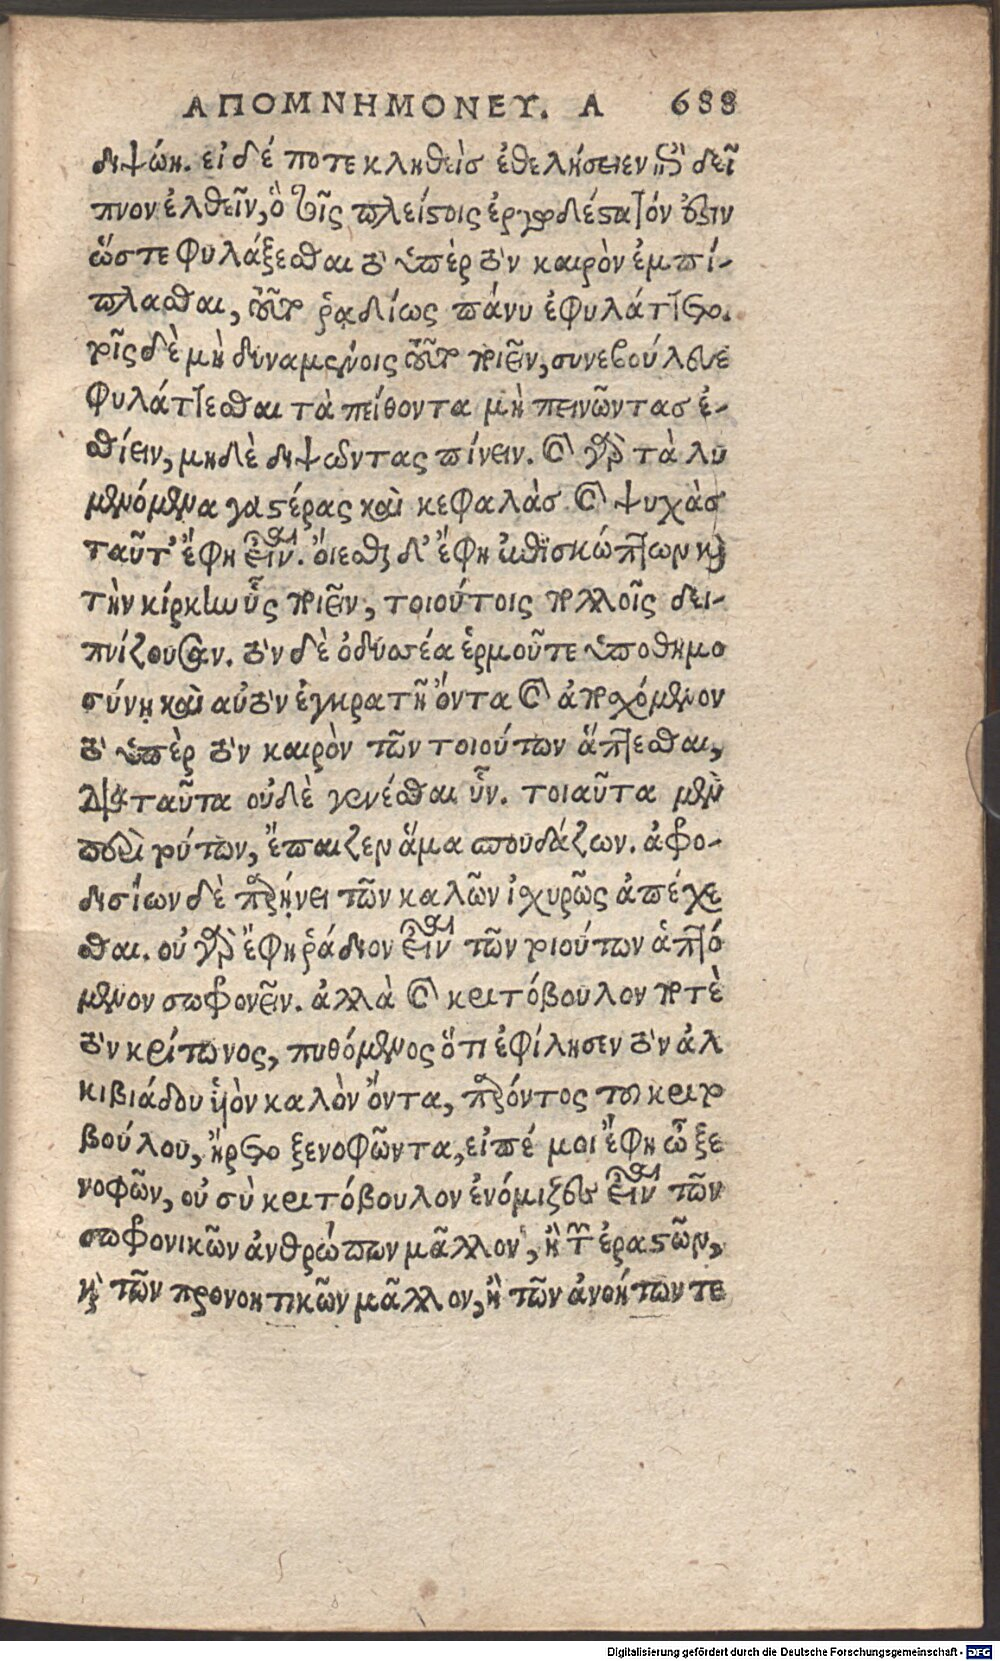 ΑΠΟΜΝΗΜΟΝΕΥ. Α 688
διψών. εἰ δέ ποτε κληθεὶσ ἐθελήσειεν ἐπὶ δεῖ
πνον ἐλθεῖν, ὃ τοῖς πλείστοις ἐργωδέστατόν ἐστιν
ὥστε φυλάξεσθαι τὸ ὑπὲρ τὸν καιρὸν ἐμπί-
πλασθαι, τοῦτο ῥᾳδίως πάνυ ἐφυλάττετο.
τοῖς δὲ μὴ δυναμένοις τοῦτο ποιεῖν, συνεβούλευε
φυλάττεσθαι τὰ πείθοντα μὴ πεινῶντασ ἐ-
σθίειν, μηδὲ διψῶντας πίνειν. καὶ γὰρ τὰ λυ
μαινόμενα γαστέρας καὶ κεφαλὰσ καὶ ψυχὰσ
ταῦτ' ἔφη εἶναι. οἴεσθαι δ' ἔφη ἐπισκώπτων καὶ
τὴν κίρκην ὗς ποιεῖν, τοιούτοις πολλοῖς δει-
πνίζουσαν. τὸν δὲ ὀδυσσέα ἑρμοῦ τε ὑποθημο
σύνῃ καὶ αὐτὸν ἐγκρατῆ ὄντα καὶ ἀποσχόμενον
τὸ ὑπὲρ τὸν καιρὸν τῶν τοιούτων ἅπτεσθαι,
διὰ ταῦτα οὐδὲ γενέσθαι ὗν. τοιαῦτα μὲν
περὶ τούτων, ἔπαιζεν ἅμα σπουδάζων. ἀφρο-
δισίων δὲ παρῄνει τῶν καλῶν ἰσχυρῶς ἀπέχε
σθαι. οὐ γὰρ ἔφη ῥάδιον εἶναι τῶν τοιούτων ἁπτό
μενον σωφρονεῖν. ἀλλὰ καὶ κριτόβουλον ποτὲ
τὸν κρίτωνος, πυθόμενος ὅτι ἐφίλησεν τὸν ἀλ
κιβιάδου ὑιὸν καλὸν ὄντα, παρόντος τοῦ κριτο
βούλου, ἤρετο ξενοφῶντα, εἰπέ μοι ἔφη ὦ ξε
νοφῶν, οὐ σὺ κριτόβουλον ἐνόμιζες εἶναι τῶν
σωφρονικῶν ἀνθρώπων μᾶλλον, ἢ τῶν ἐραστῶν,
καὶ τῶν προνοητικῶν μᾶλλον, ἢ τῶν ἀνοήτων τε
Digitalisierung gefördert durch die Deutsche Forschungsgemeinschaft - DFG